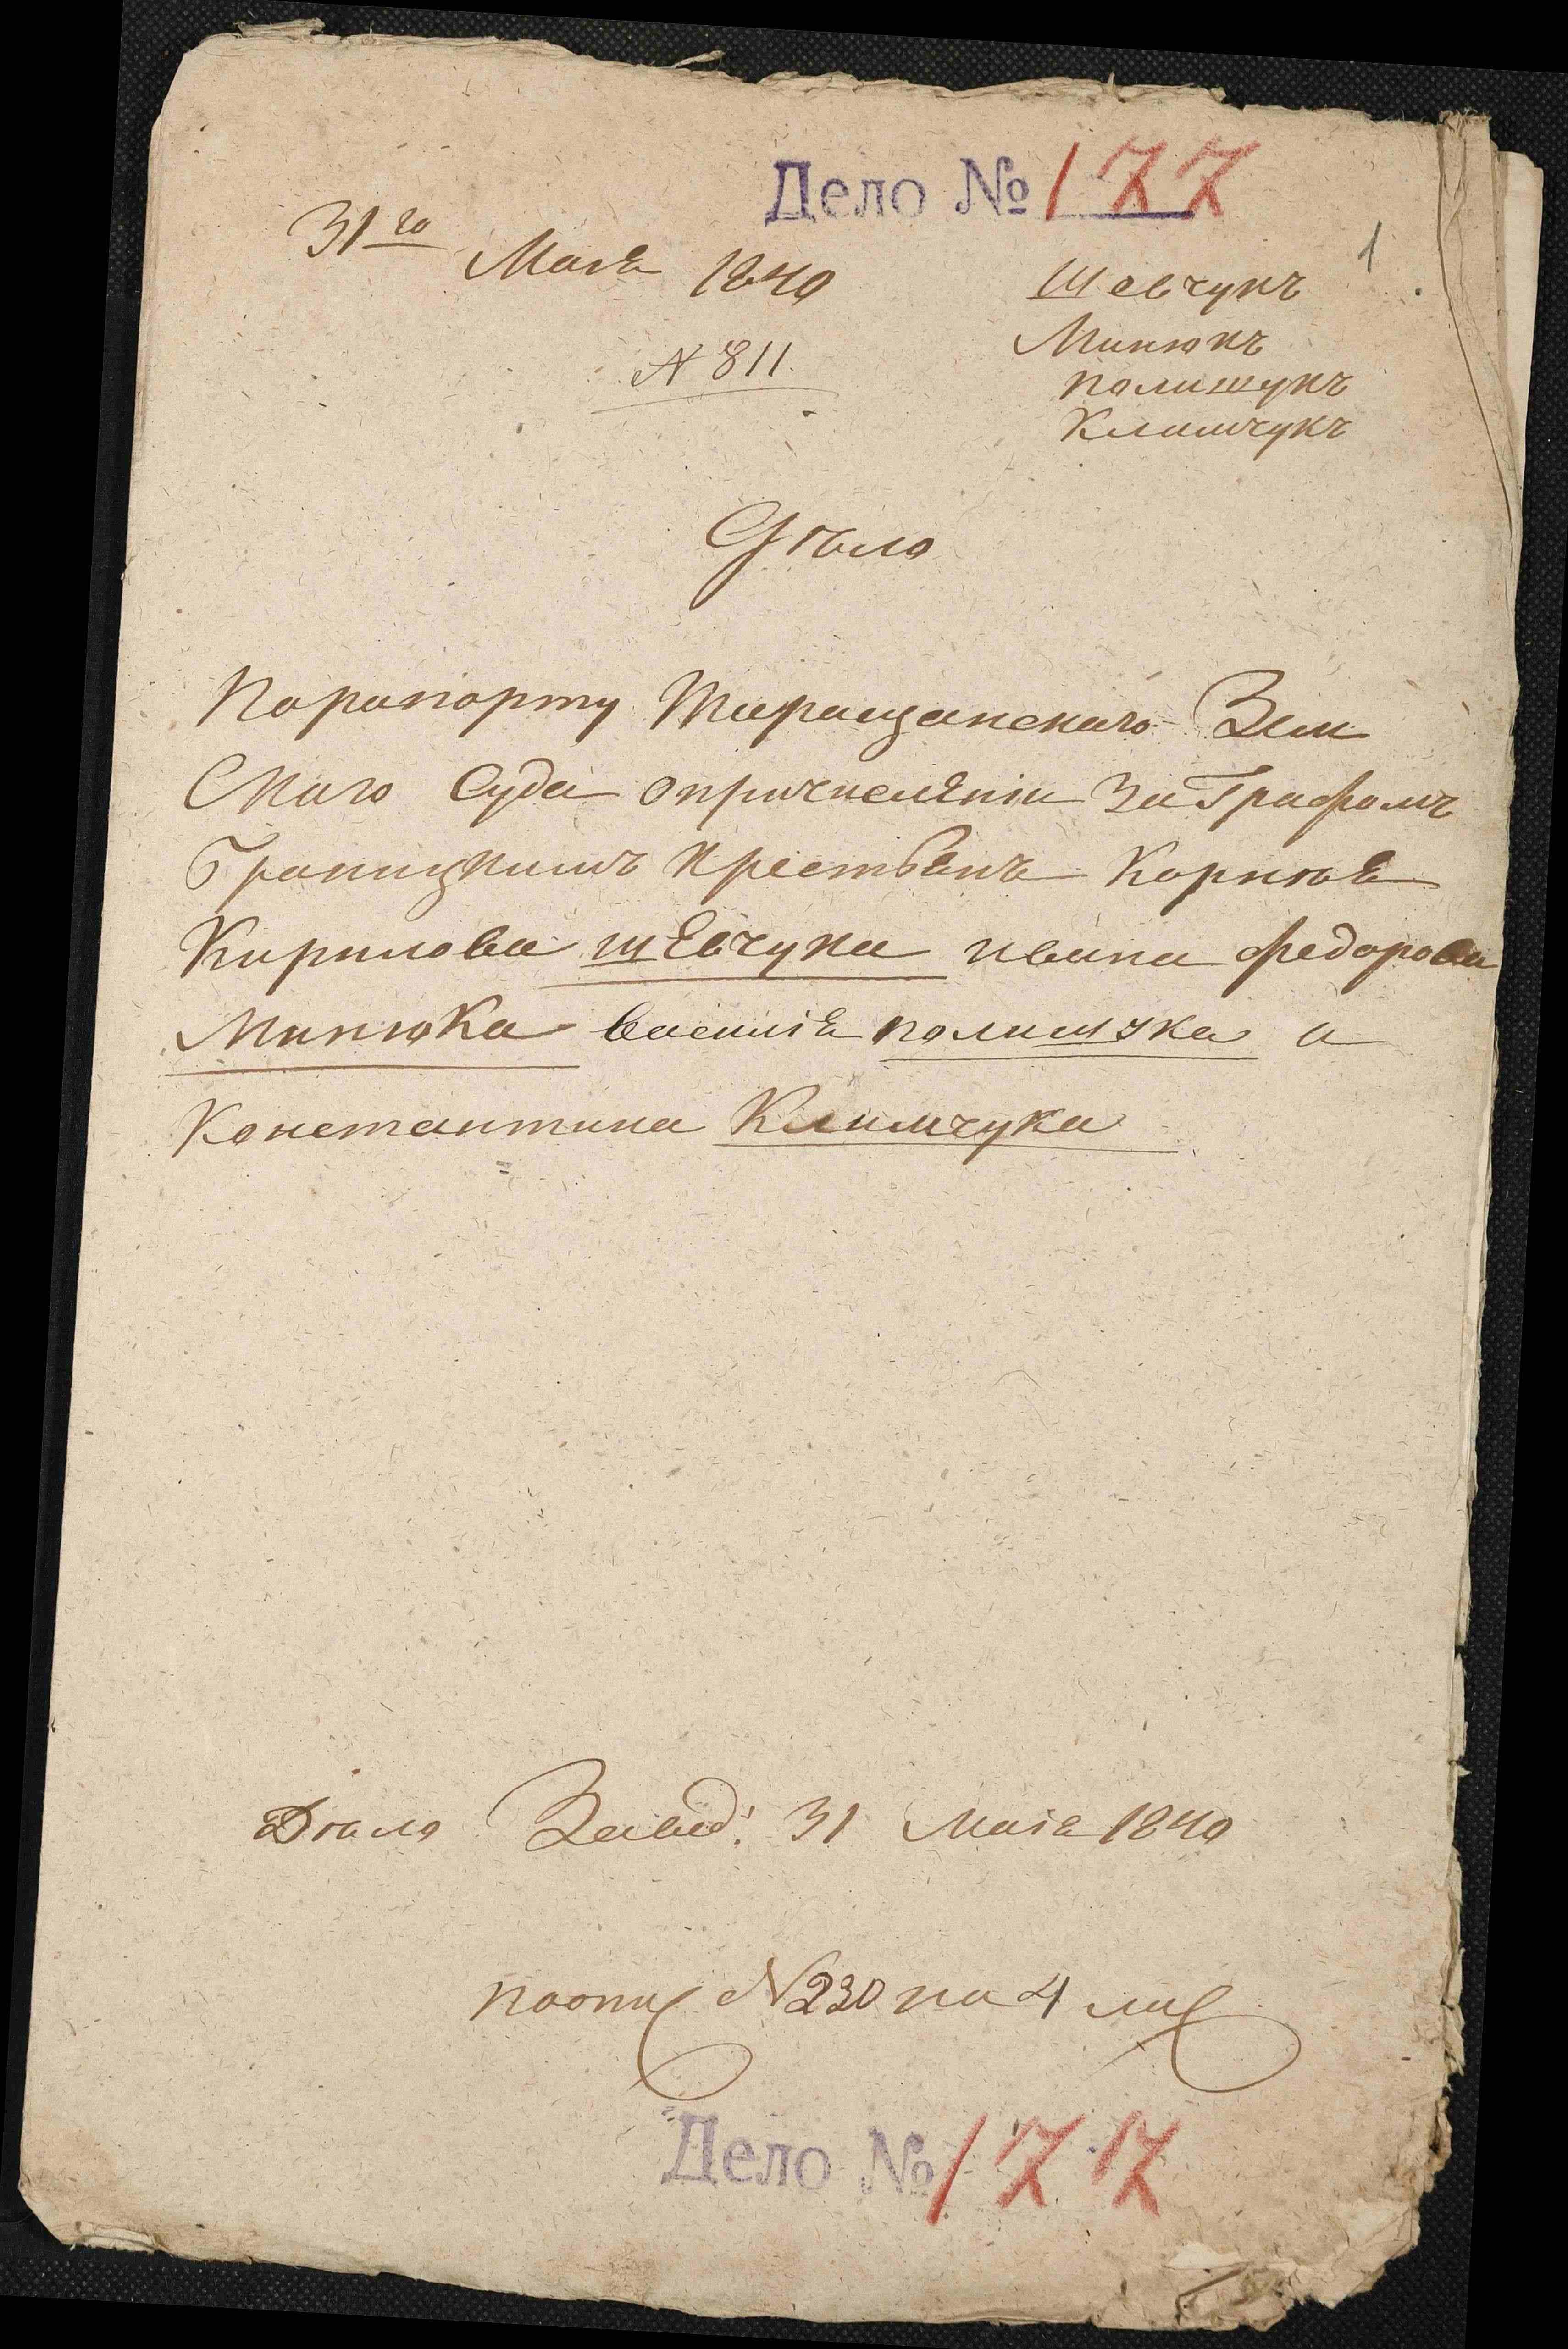 Дело № 177
1
31го Маія 1840
№ 811.
Шевчукъ
Минюкъ
полишукъ
Климчукъ
Дѣло
Порапорту Таращанскаго Зем
Скаго Суда опричисленіи За Графомъ
Браницкимъ Крестьянъ Корнія
Кирилова шевчука ивана федорова
Минюка василія полишука и
Константина Климчука
Дѣло Завед: 31 Маія 1840
поопис N 230 на 4 лис
Дело № 177